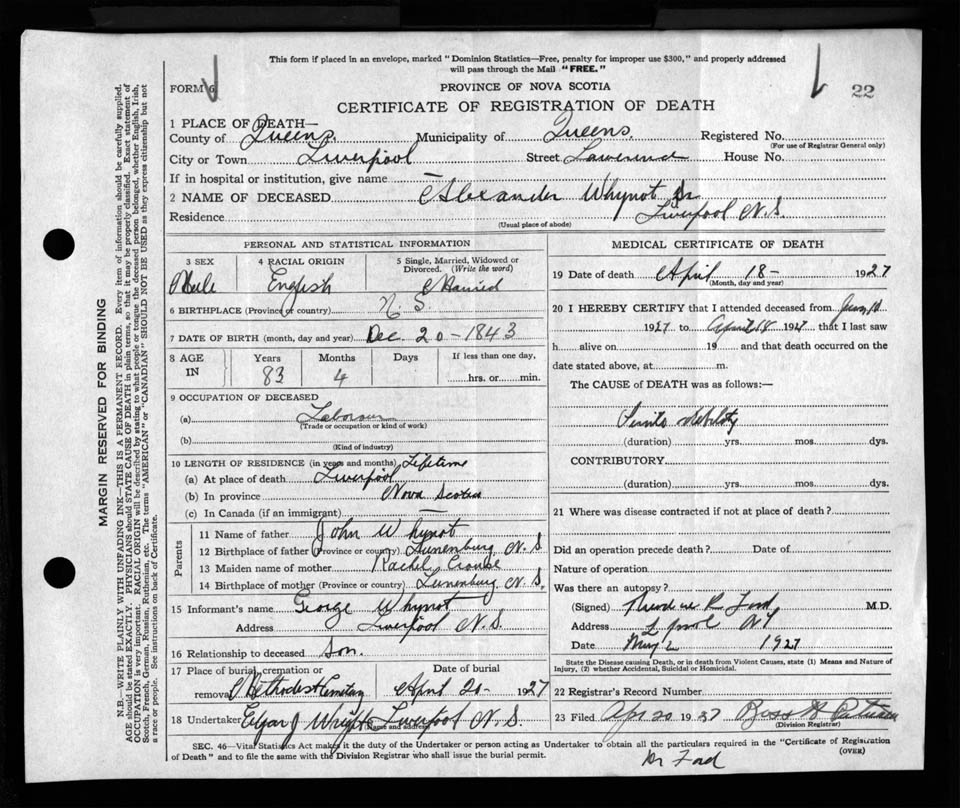 This form if placed in an envelope, marked "Dominion Statistics—Free, penalty for improper use $300," and properly addressed
will pass through the Mail "FREE."
FORM 6
PROVINCE OF NOVA SCOTIA
22
CERTIFICATE OF REGISTRATION OF DEATH
1 PLACE OF DEATH—
County of Queens. Municipality of Queens. Registered No.
(For use of Registrar General only)
City or Town Liverpool Street House No.
If in hospital or institution, give name —
2 NAME OF DECEASED Alexander Whynot Sr
Residence Liverpool N.S.
(Usual place of abode)
PERSONAL AND STATISTICAL INFORMATION
3 SEX 4 RACIAL ORIGIN 5 Single, Married, Widowed or
Divorced. (Write the word)
Male English Married
6 BIRTHPLACE (Province or country) N. S
7 DATE OF BIRTH (month, day and year) Dec. 20-1843
8 AGE Years Months Days If less than one day,
IN 83 4 hrs. or min.
9 OCCUPATION OF DECEASED
(a) Labourer
(Trade or occupation or kind of work)
(b)
(Kind of industry)
10 LENGTH OF RESIDENCE (in years and months) Lifetime
(a) At place of death Liverpool
(b) In province Nova Scotia
(c) In Canada (if an immigrant) —
Parents
11 Name of father John Whynot
12 Birthplace of father (Province or country) Lunenburg N. S
13 Maiden name of mother Rachel Crouse
14 Birthplace of mother (Province or country) Lunenburg N. S.
15 Informant's name George Whynot
Address Liverpool N.S.
16 Relationship to deceased Son.
17 Place of burial, cremation or Date of burial
removal Methodist Cemetary April 20- 1927
18 Undertaker Elgar J Wright Liverpool N. S.
(Name and address)
MEDICAL CERTIFICATE OF DEATH
19 Date of death April 18- 1927
(Month, day and year)
20 I HEREBY CERTIFY that I attended deceased from
1927 to April 18 1927 that I last saw
h alive on 19 and that death occurred on the
date stated above, at m.
The CAUSE of DEATH was as follows:—
debility
(duration) yrs. mos. dys.
CONTRIBUTORY
(duration) yrs. mos. dys.
21 Where was disease contracted if not at place of death?
Did an operation precede death? Date of
Nature of operation
Was there an autopsy?
(Signed) Theodore R Ford M.D.
Address L'pool NS
Date 1927
State the Disease causing Death, or in death from Violent Causes, state (1) Means and Nature of
Injury, (2) whether Accidental, Suicidal or Homicidal.
22 Registrar's Record Number
23 Filed Apr 20 1927
(Division Registrar)
SEC. 46—Vital Statistics Act makes it the duty of the Undertaker or person acting as Undertaker to obtain all the particulars required in the "Certificate of Registration
of Death" and to file the same with the Division Registrar who shall issue the burial permit.
(OVER)
Dr Ford
MARGIN RESERVED FOR BINDING
N.B.—WRITE PLAINLY WITH UNFADING INK—THIS IS A PERMANENT RECORD. Every item of information should be carefully supplied.
AGE should be stated EXACTLY. PHYSICIANS should STATE CAUSE OF DEATH in plain terms, so that it may be properly classified. Exact statement of
OCCUPATION is very important. RACIAL ORIGIN will be described by stating to what people or tongue the deceased person belonged, whether English, Irish,
Scotch, French, German, Russian, Ruthenian, etc. The terms "AMERICAN" or "CANADIAN" SHOULD NOT BE USED as they express citizenship but not
a race or people. See instructions on back of Certificate.